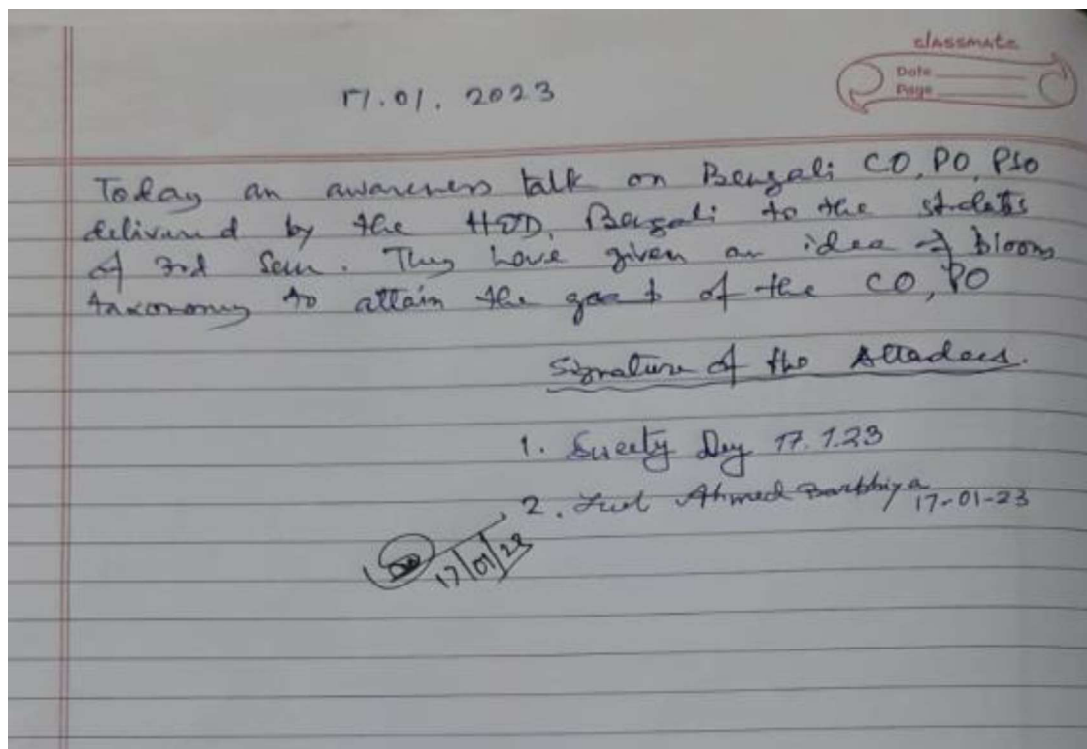 classmate
Date
Page
17.01.2023
Today an awareness talk on Bengali CO, PO, PSO
delivered by the HOD, Bengali to the students
of 3rd Sem. They have given an idea of bloom
taxonomy to attain the goal of the CO, PO
Signature of the Attadees.
1. Sweety Dey 17.1.23
2. Ahmed Barbhiya 17-01-23
17/01/23